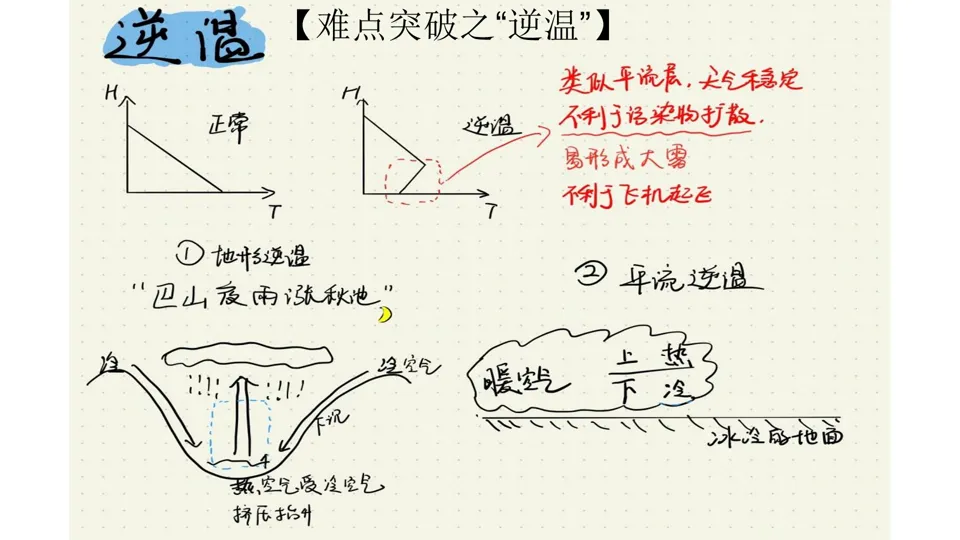 逆温
【难点突破之“逆温”】
H
正常
T
H
逆温
T
类似平流层,天气稳定
不利于污染物扩散.
易形成大雾
不利于飞机起飞
① 地形逆温
"巴山夜雨涨秋池"
冷
冷空气
下沉
热空气受冷空气
挤压抬升
② 平流逆温
暖空气
上 热
下 冷
冰冷的地面